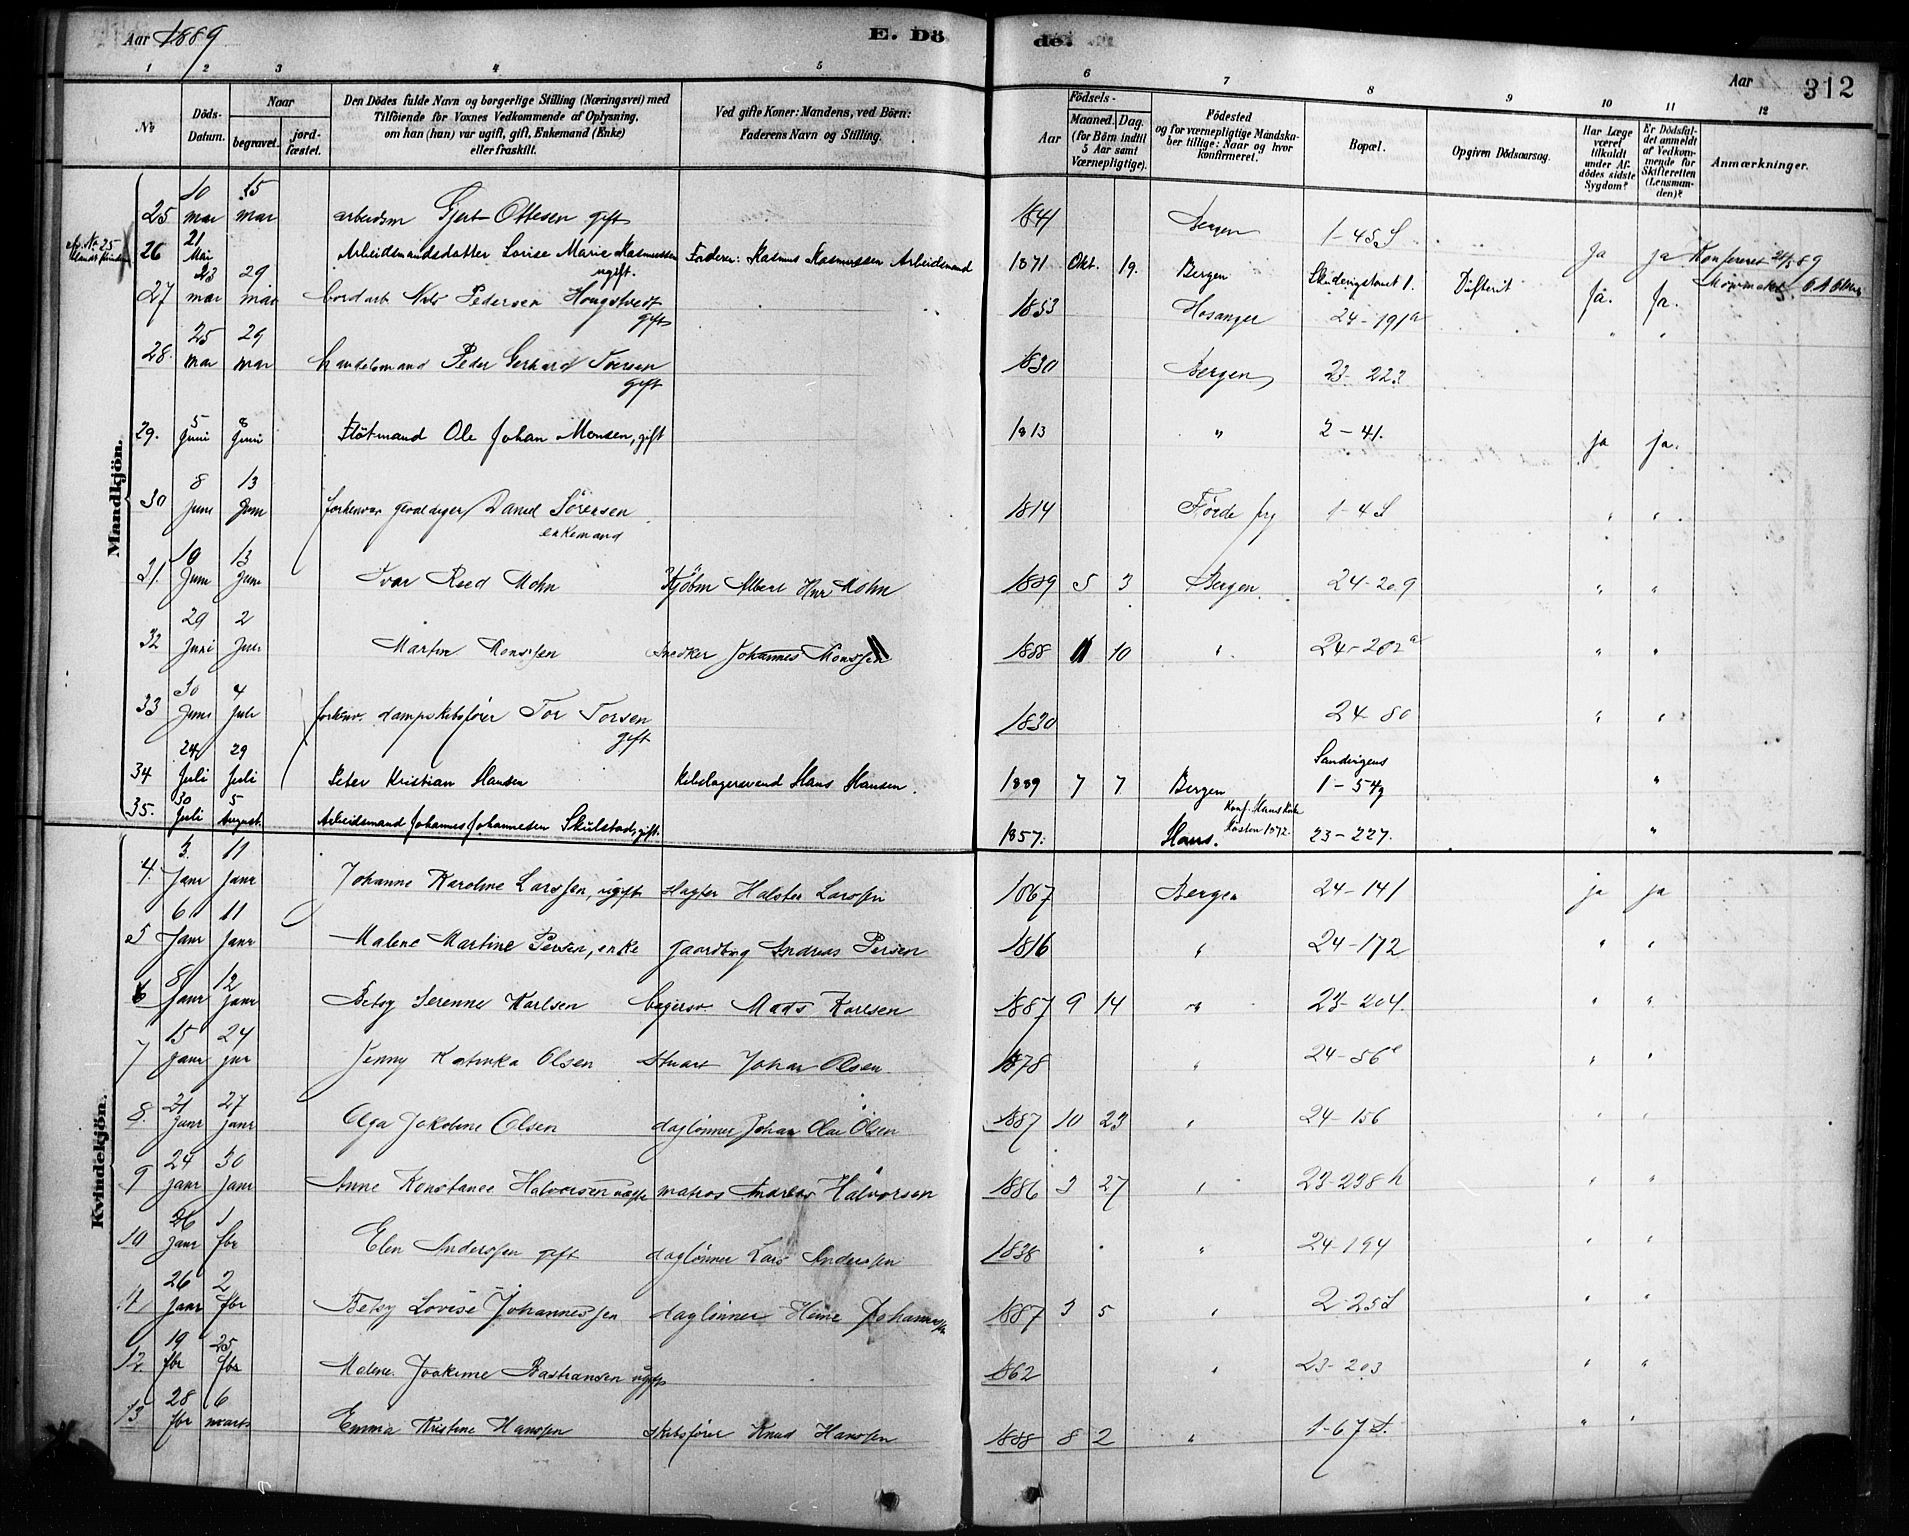 Aar 1889
E. Dö de.
Aar
312
1 2 3 4 5 6 7 8 9 10 11 12
№
Döds-Datum.
Naar
begravet.
jord-fæstet.
Den Dödes fulde Navn og borgerlige Stilling (Næringsvei) med
Tilföiende for Voxnes Vedkommende af Oplysning,
om han (hun) var ugift, gift, Enkemand (Enke)
eller fraskilt.
Ved gifte Koner: Mandens, ved Börn:
Faderens Navn og Stilling.
Födsels-
Aar
Maaned. Dag.
(for Börn indtil
5 Aar samt
Værnepligtige).
Födested
og for værnepligtige Mandska-
ber tillige: Naar og hvor
konfirmeret.
Bopæl.
Opgiven Dödsaarsag.
Har Læge
været
tilkaldt
under Af-
dödes sidste
Sygdom?
Er Dödsfal-
det anmeldt
af Vedkom-
mende for
Skifteretten
(Lensman-
den)?
Anmærkninger.
Mandkjön.
25 10 mar 15 mar arbeidsm Gjert Ottesen gift 1841 Bergen 1-45 S
26 21 Mai Arbeidsmandsdatter Lovise Marie Rasmussen ugift. Forældre: Rasmus Rasmussen Arbeidsmand 1871 Okt. 19. Bergen 1. Difterit Ja ja
27 23 mar 29 mar bordarb Nils Pedersen Hougstvedt gift 1853 Hosanger 24-191a Ja. Ja.
28. 25 mar 29 mar handelsmand Peder Gerhard Iversen gift 1830 Bergen 23-223 " "
29. 5 Juni 8 Juni Flötmand Ole Johan Monsen, gift 1813 " 2-41. ja ja.
30 8 Juni 13 Juni forhenvær gevaldiger Daniel Sörensen enkemand 1814 Förde prg 1-4 S " "
31. 10 Juni 13 Juni Ivar Reed Mohn Kjöbm Albert Hnr Mohn 1889 5 3 Bergen 24-209 " "
32 29 Juni 2 Juli Martin Monssen Snedker Johannes Monssen 1888 11 10 " 24-202a " "
33 30 Juni 4 Juli forhenv. dampskibsförer Tor Torsen gift 1830 24-80 " "
34 24 Juli 29 Juli Peter Kristian Hansen Hans Hansen. 1889 7 7 Bergen Sandvigens 1-54g "
35. 30 Juli 5 August. Arbeidsmand Johannes Johannesen Skulstad, gift. 1857. Haus. Konf. Haus Kirke Hösten 1872. 23-227. "
Kvindekjön.
4. 3. Janr 11 Janr Johanne Karoline Larssen, ugift slagter Halsten Larssen 1867 Bergen 24-141 ja ja
5 6 Janr 11 Janr Malene Martine Persen, enke gaardbrg Andreas Persen 1816 " 24-172 " "
6 8 Janr 12 Janr Betsy Serenne Karlsen Mads Karlsen 1887 9 14 " 23-204. " "
7 15 Janr 24 jnr Jenny Katinka Olsen Stuart Johan Olsen 1878 " 24-56e " "
8. 21 Janr 27 Janr Olga Jakobine Olsen daglönner Johan Olai Olsen 1887 10 23 " 24-156 " "
9 24 Janr 30 Janr Anne Konstance Halvorsen ugift matros Andreas Halvorsen 1886 3 27 " 23-238 h " "
10 26 Janr 1 fbr Elen Anderssen gift daglönner Lars Anderssen 1838 " 24-194 " "
11 26 Janr 2 fbr Betsy Lovise Johannessen daglönner Heine Johannessen 1887 3 5 " 2-25 S " "
12 19 fbr 25 fbr Malene Joakime Bastiansen ugift 1862 " 23-203 " "
13 28 fbr 6 marts Emma Kristine Hanssen skibsförer Knud Hanssen 1888 8 2 " 1-67 S. " "